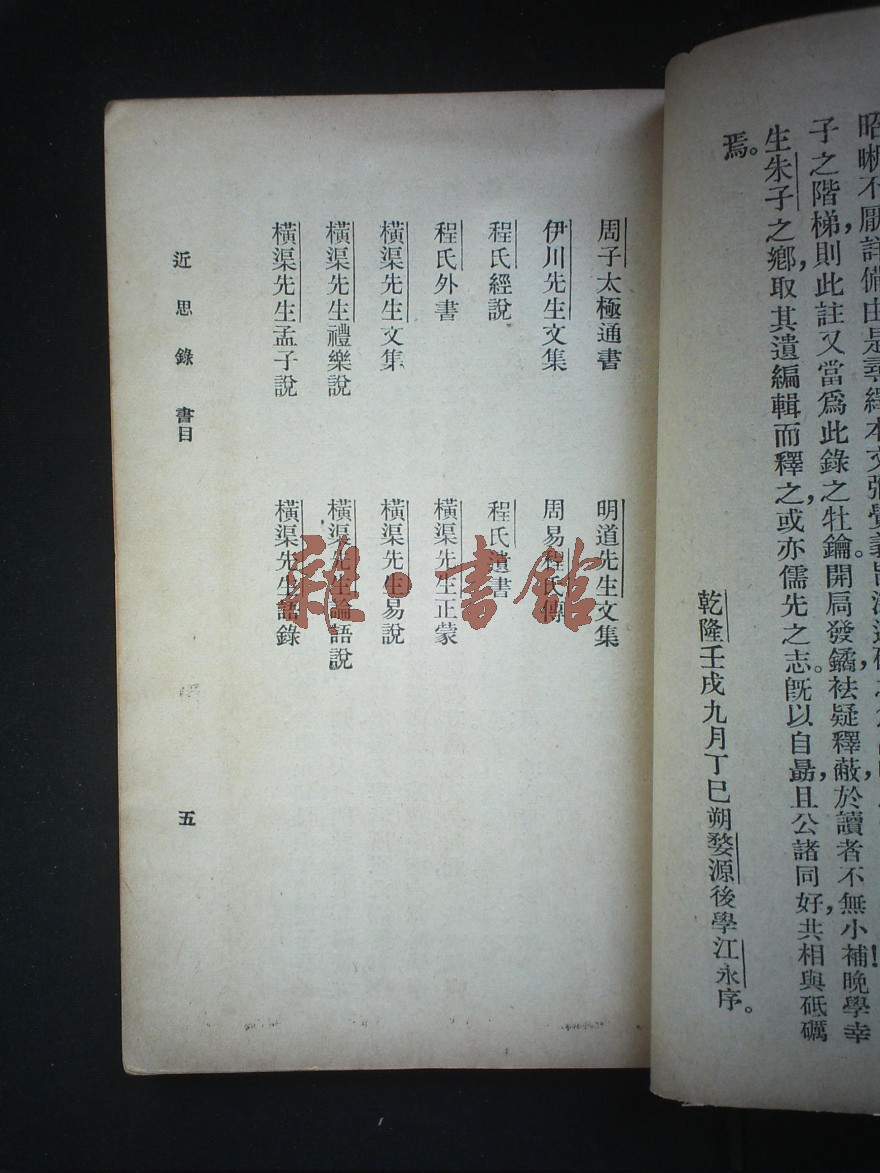 子之階梯，則此註又當爲此錄之牡鑰，開局發鐍，袪疑釋蔽，於讀者不無小補。晚學幸
生朱子之鄕，取其遺編，輯而釋之，或亦儒先之志。旣以自勗，且公諸同好，共相與砥礪
焉。
乾隆壬戌九月丁巳朔婺源後學江永序。
周子太極通書 明道先生文集
伊川先生文集 周易程氏傳
程氏經說 程氏遺書
程氏外書 橫渠先生正蒙
橫渠先生文集 橫渠先生易說
橫渠先生禮樂說 橫渠先生論語說
橫渠先生孟子說 橫渠先生語錄
近思錄 書目
五
雜·書館